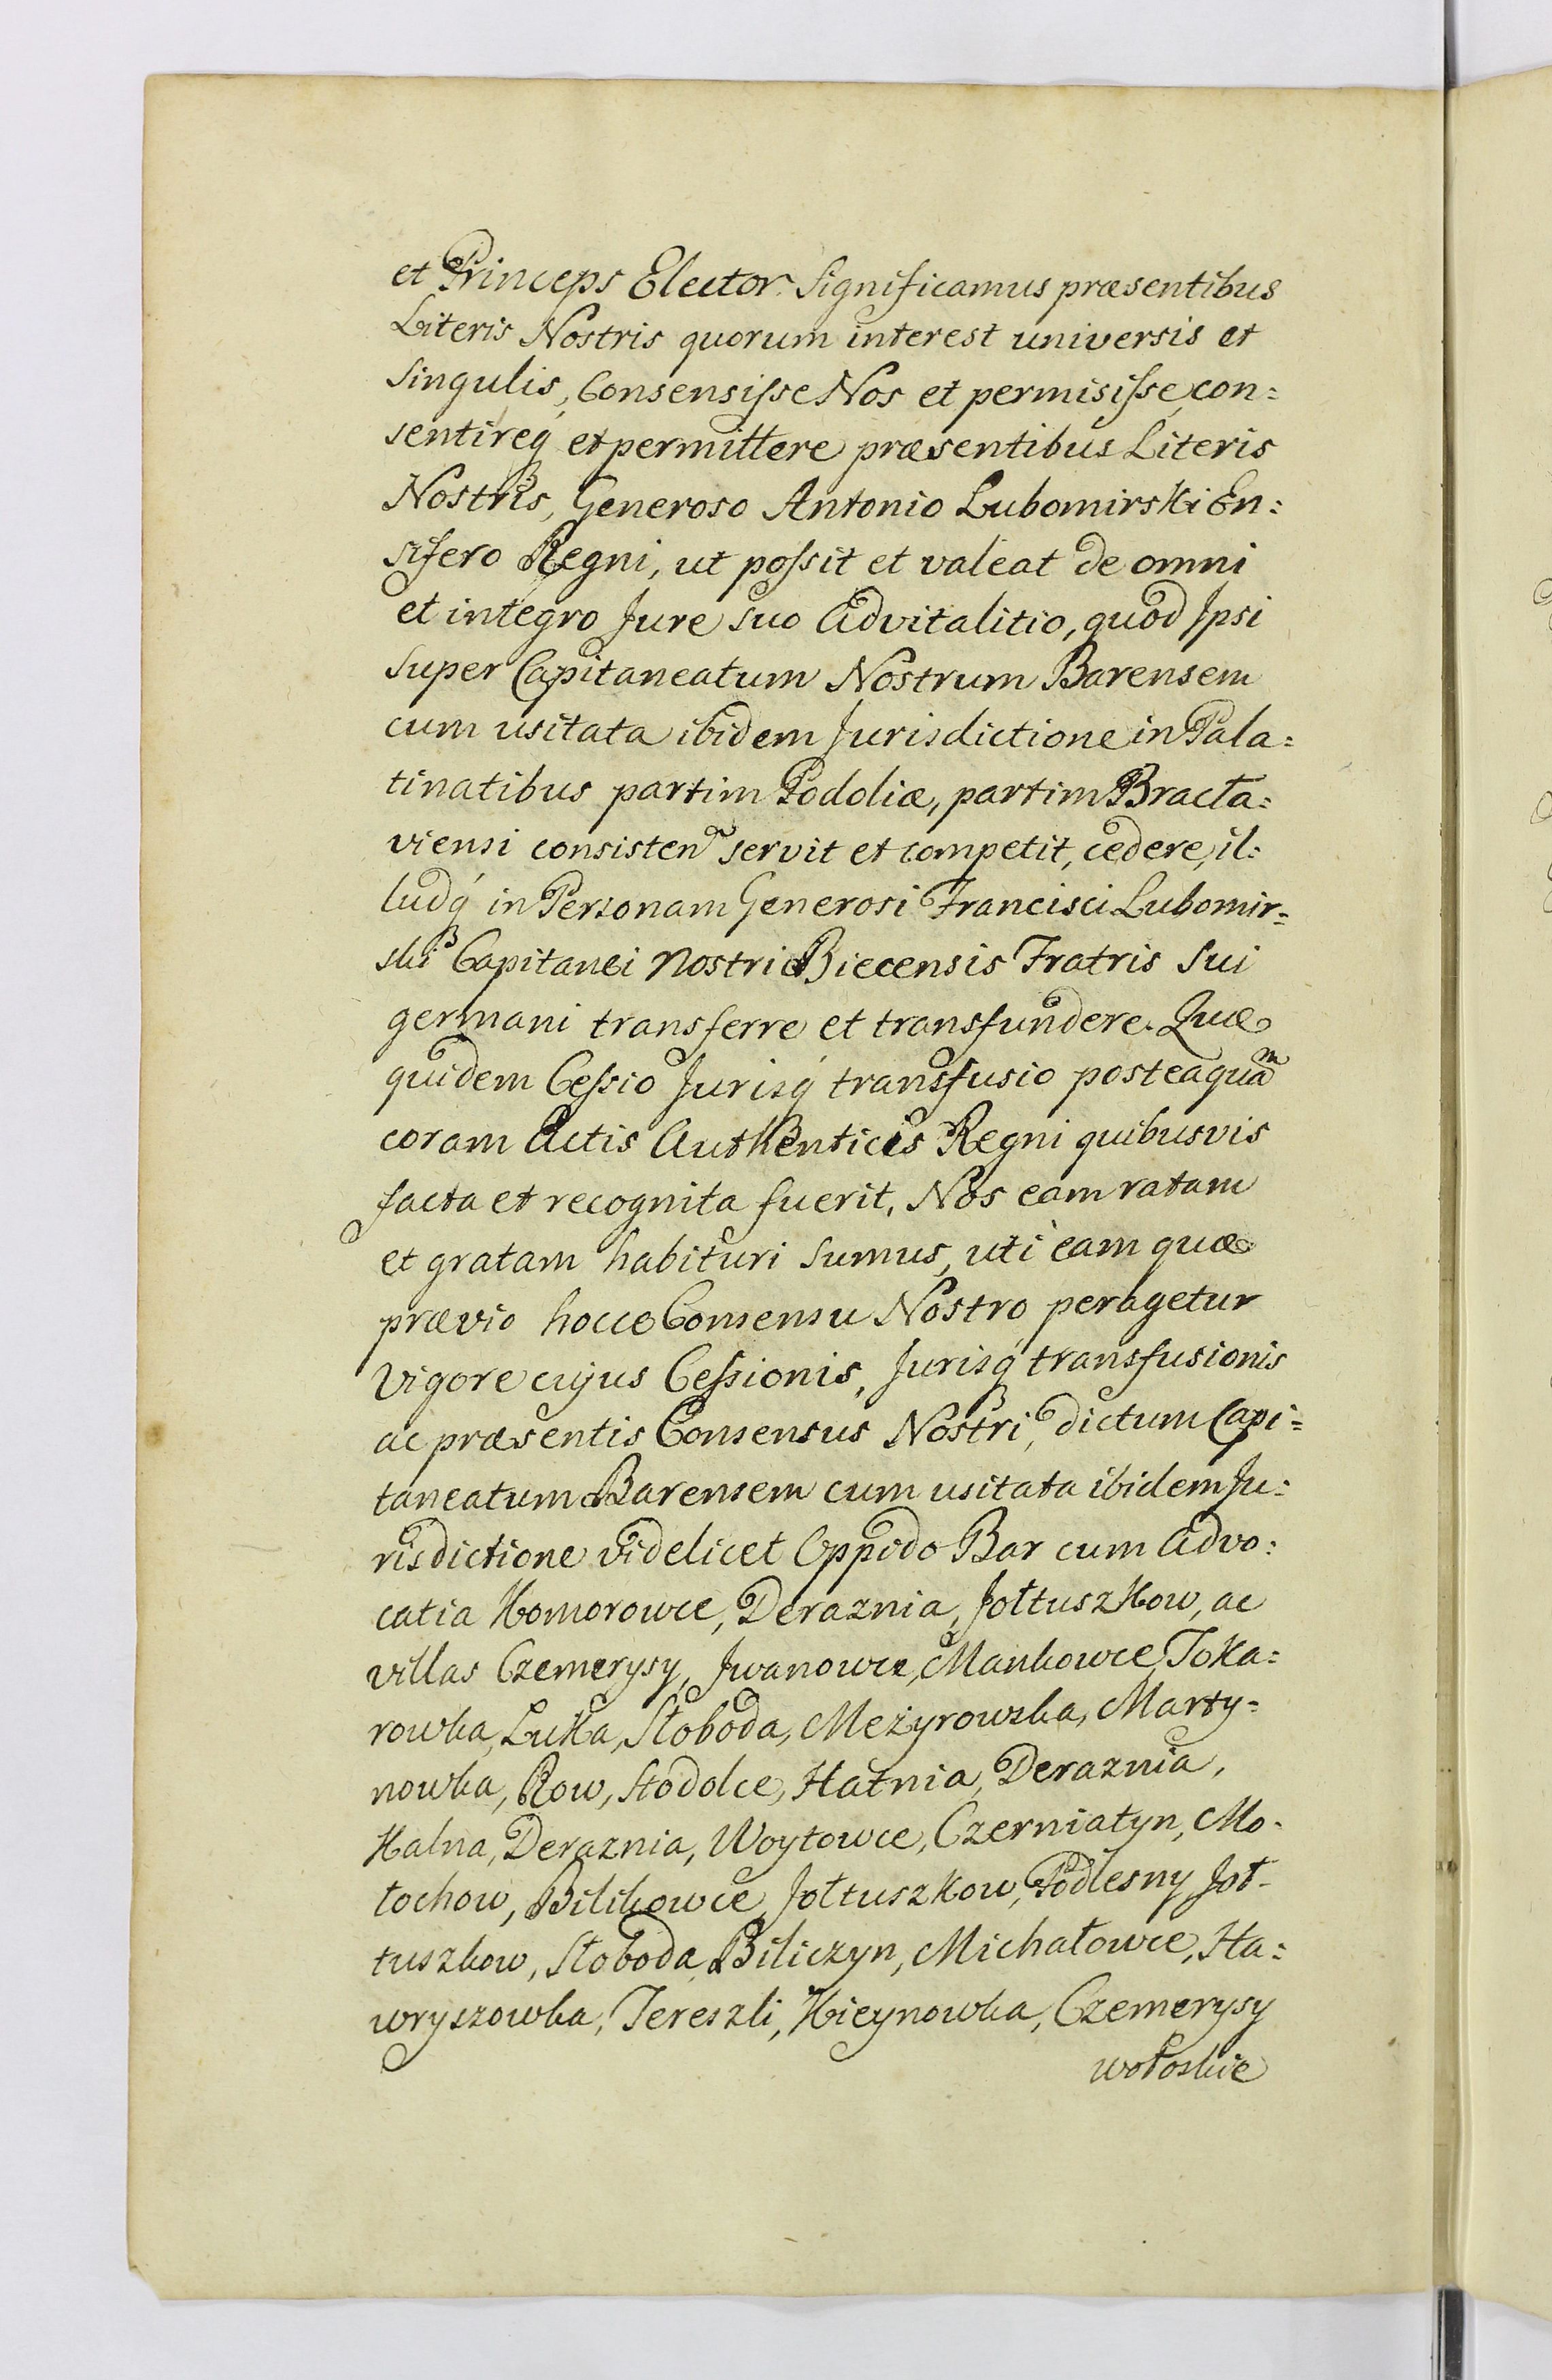 et Princeps Elector. Significamus præsentibus
Literis Nostris quorum interest universis et
Singulis, Consensiſse Nos et permisiſse, con=
sentireq́ꝫ et permittere præsentibus Literis
Nostris, Generoso Antonio Lubomirski En=
sifero Regni, ut poſsit et valeat de omni
et integro Jure suo Advitalitio, quod Ipsi
super Capitaneatum Nostrum Barensem
cum usitata ibidem Jurisdictione in Pala=
tinatibus partim Podoliæ, partim Bracla=
viensi consisten̄ servit et competit, cedere, il=
ludq́ꝫ in Personam Generosi Francisci Lubomir=
ski Capitanei Nostri Biecensis Fratris Sui
germani transferre et transfundere. Quæ
quidem Ceſsio Jurisq́ꝫ transfusio posteaquam
coram Actis Authenticis Regni quibusvis
facta et recognita fuerit, Nos eam ratam
et gratam habituri sumus, uti eam quæ
prævio hocce Consensu Nostro peragetur
Vigore cujus Ceſsionis, Jurisq́ꝫ transfusionis
ac præsentis Consensus Nostri, dictum Capi=
taneatum Barensem cum usitata ibidem Ju=
risdictione videlicet Oppido Bar cum Advo=
catia Komorowce, Deraznia, Jołtuszkow, ac
villas Czemerysy, Jwanowce, Mankowce, Toka=
rowka, Luka, Słoboda, Meżyrowska, Marty=
nowka, Row, Stodolce, Hatnia, Deraznia,
Kalna, Deraznia, Woytowce, Czerniatyn, Mo-
łochow, Bilikowce, Jołtuszkow, Podlesny Joł-
tuszkow, Słoboda, Biliczyn, Michałowce, Ha=
wryszowka, Tereszki, Kieynowka, Czemerysy
wołoskie